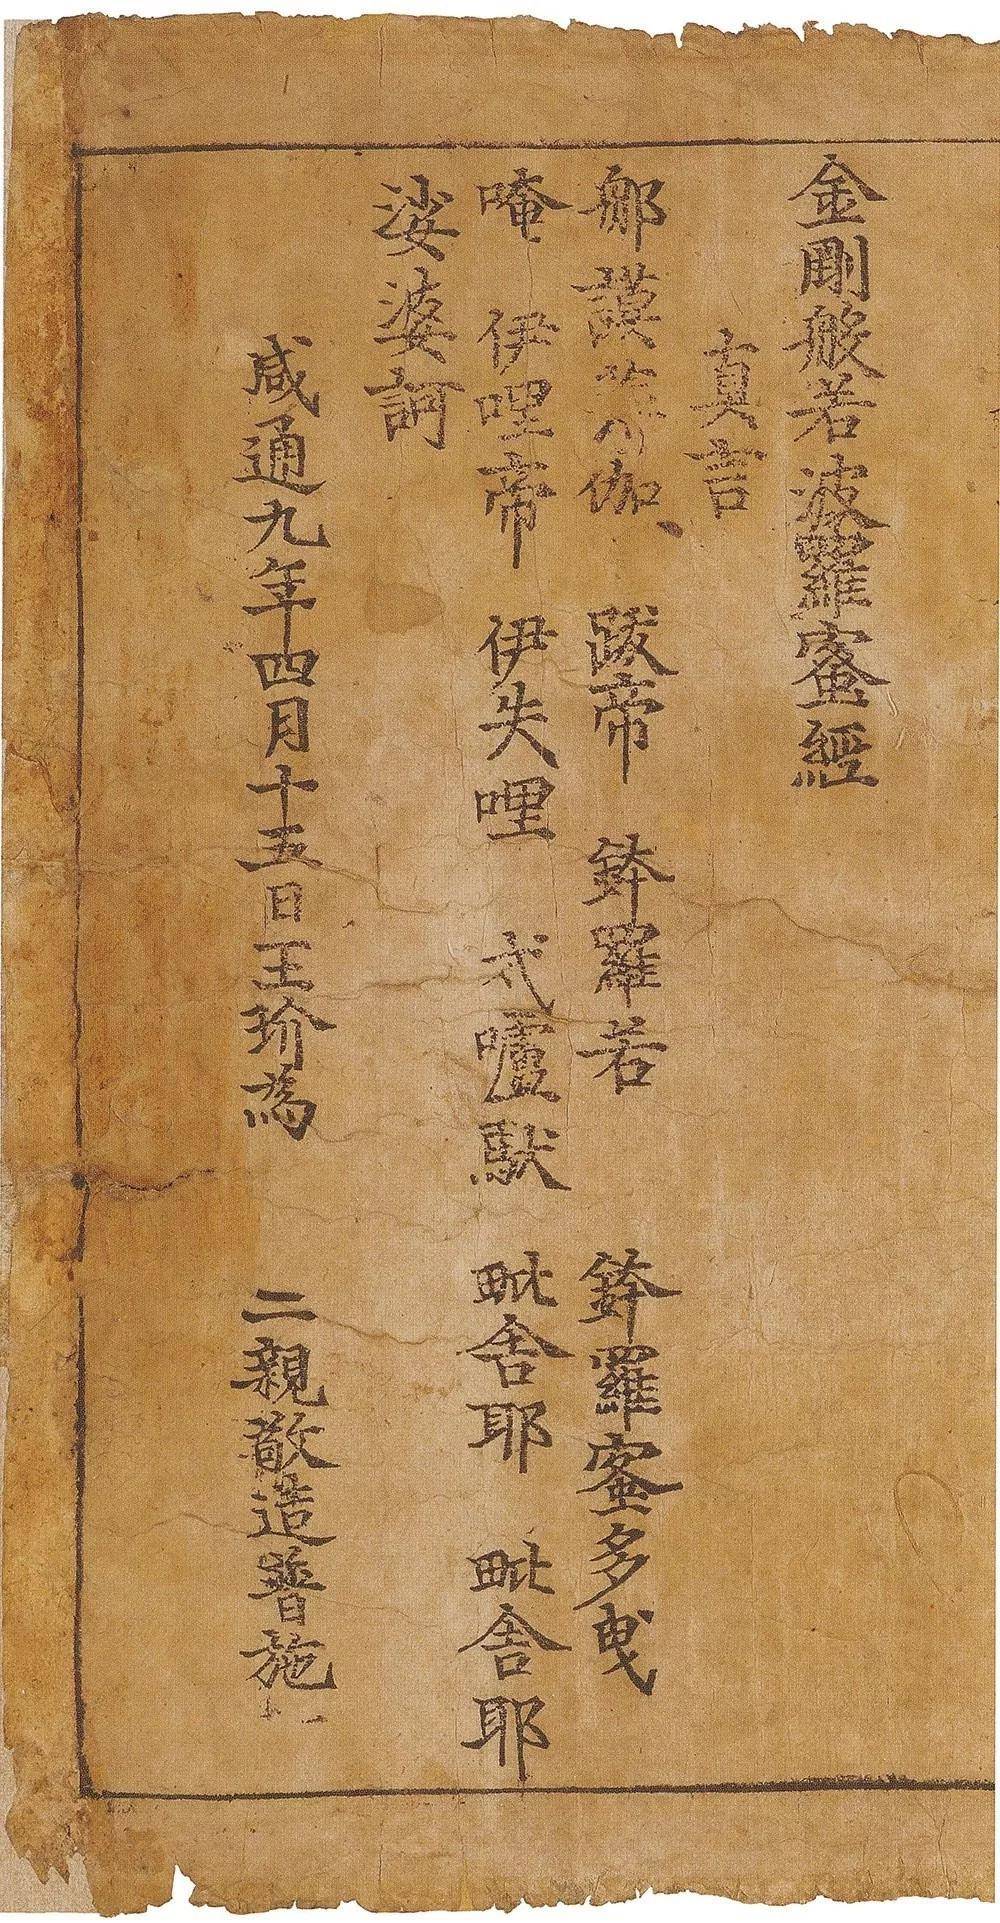 金剛般若波羅蜜經
真言
那謨伽、 跋帝 鉢羅若 鉢羅蜜多曳
唵 伊哩帝 伊失哩 戍嚧馱 毗舍耶 毗舍耶
娑婆訶
咸通九年四月十五日王玠為 二親敬造普施